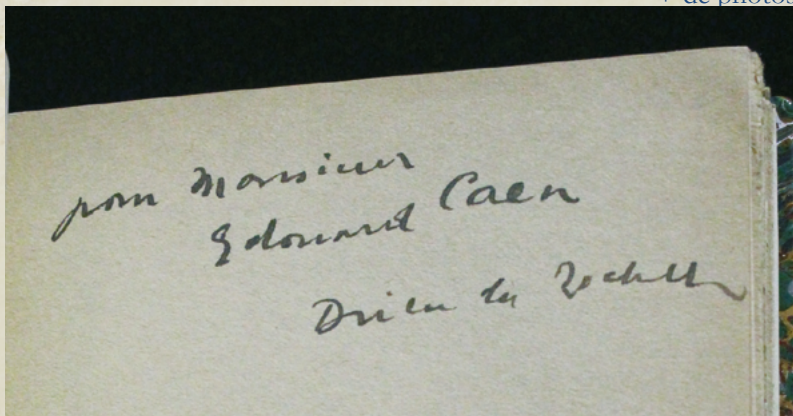 de photos
pour Monsieur
Edouard Caen
Drieu la Rochelle